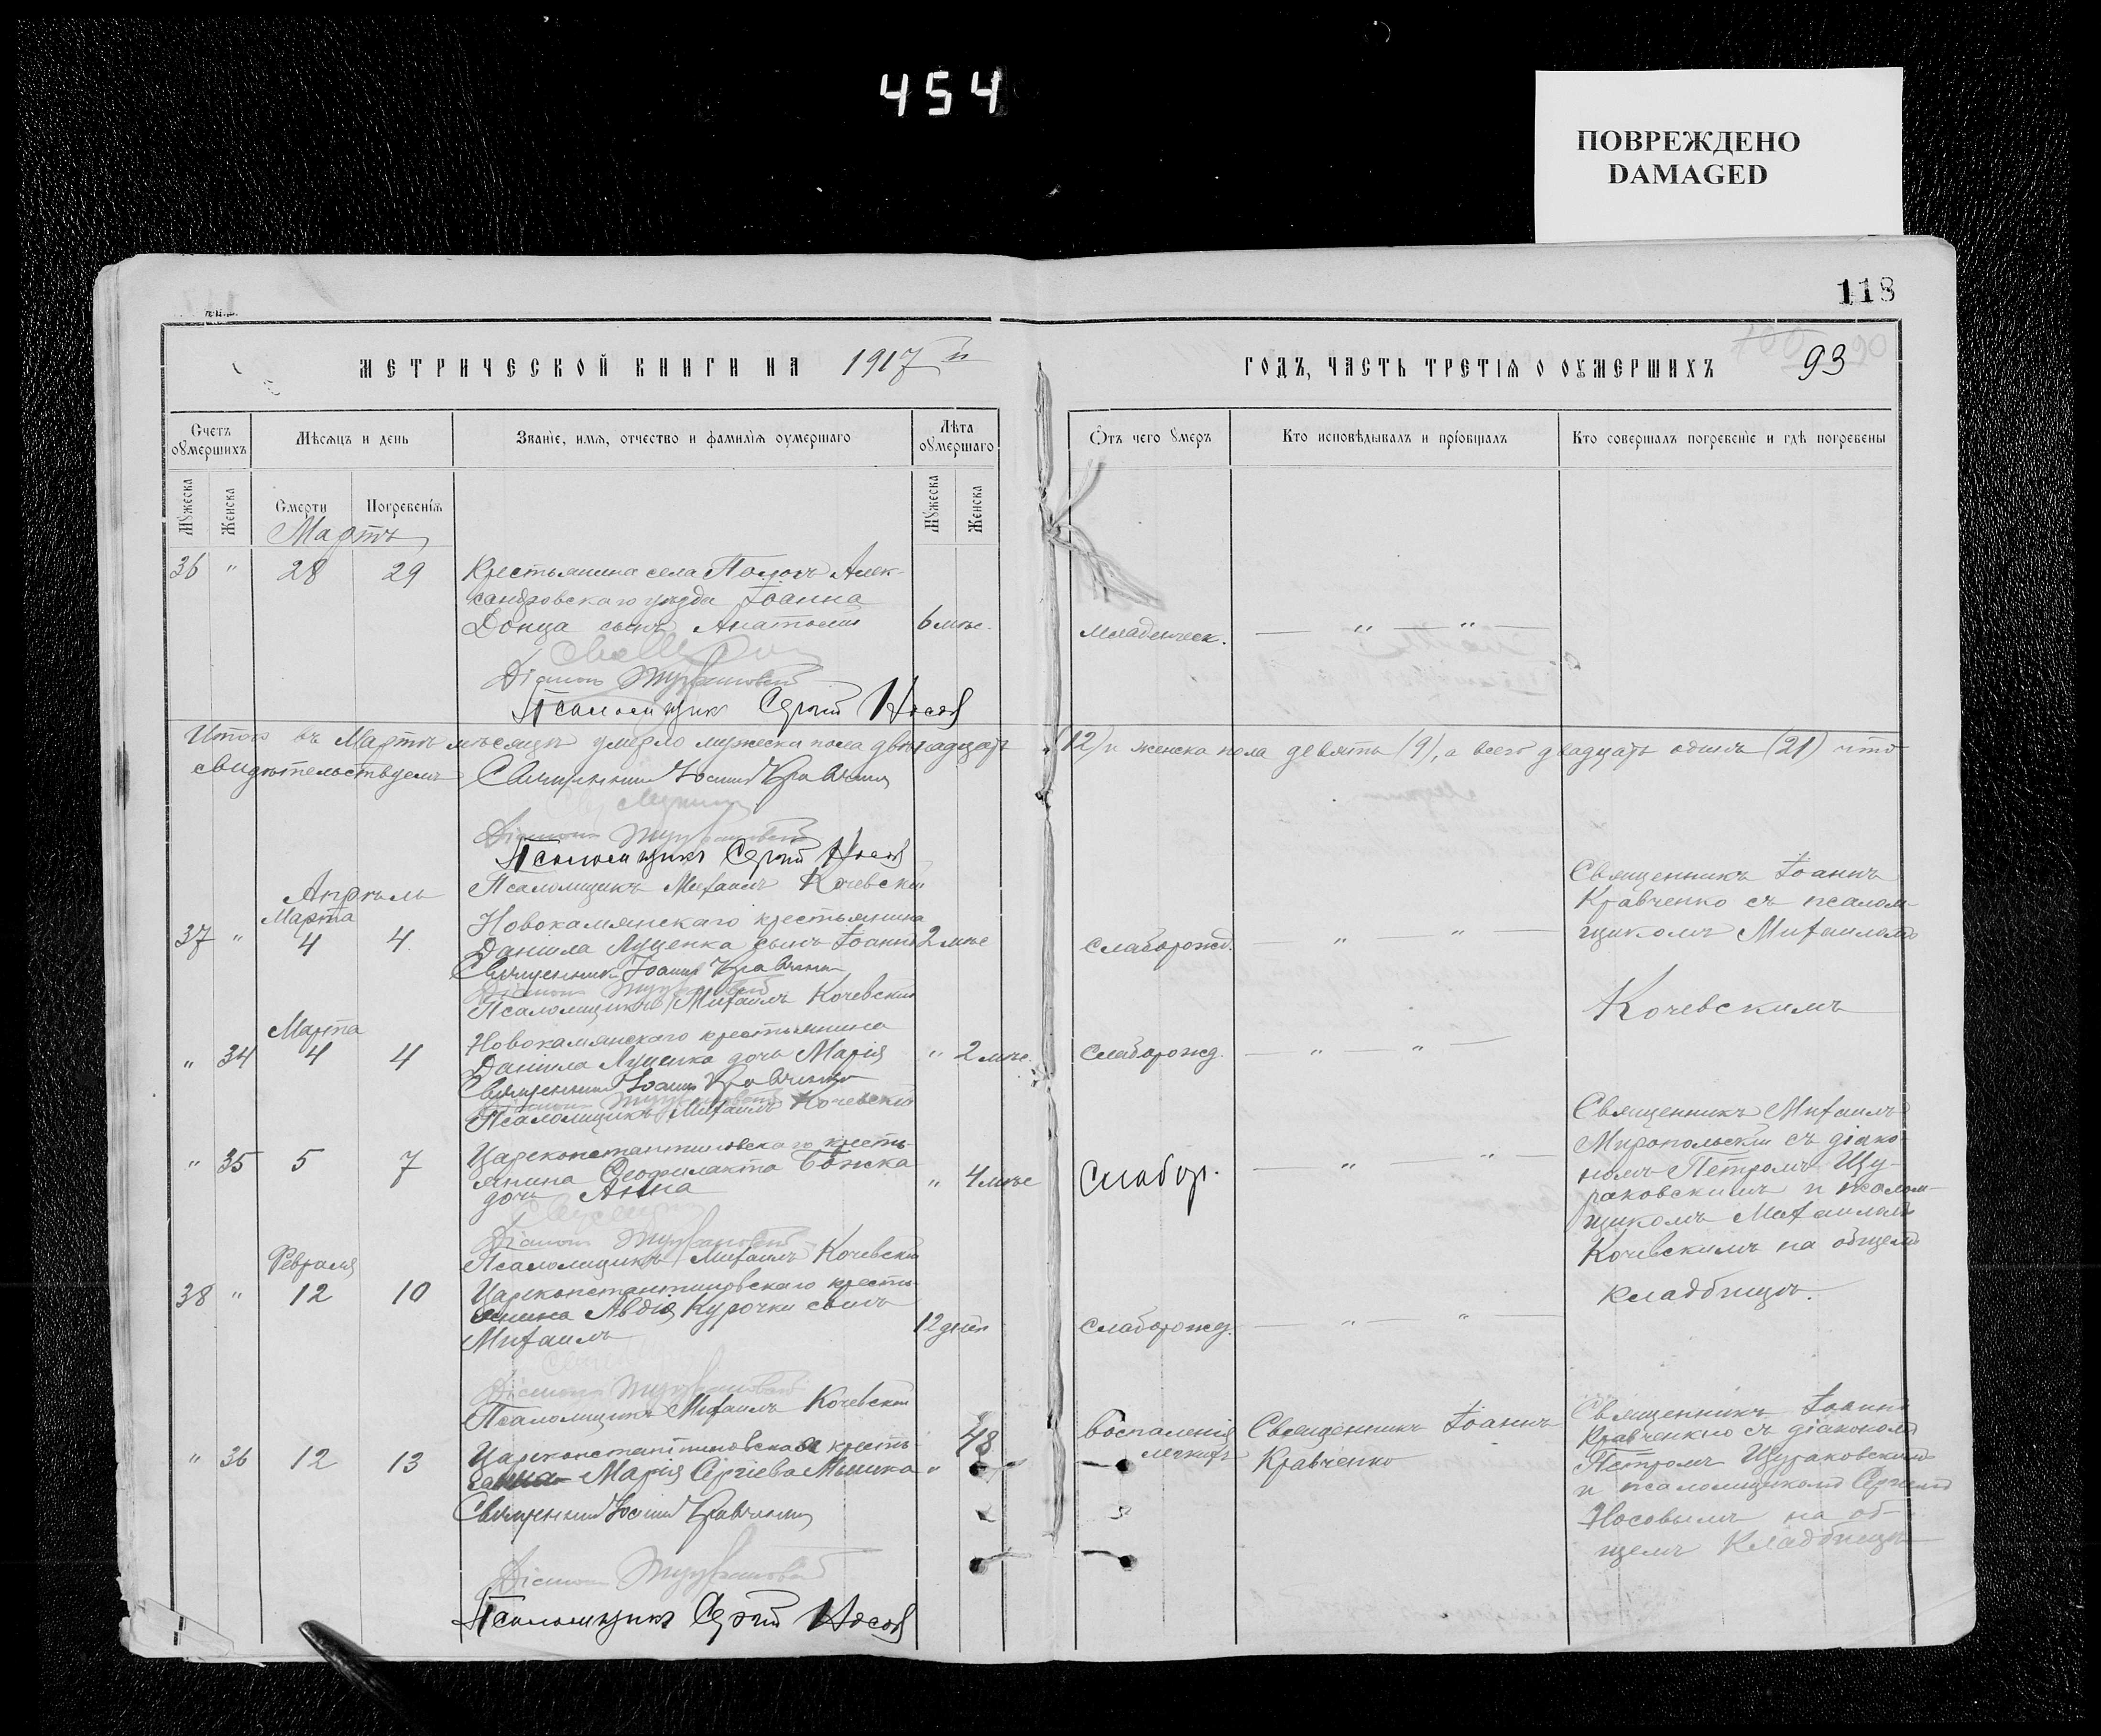 454
ПОВРЕЖДЕНО
DAMAGED
118
МЕТРИЧЕСКОЙ КНИГИ НА 1917 й
ГОДЪ, ЧАСТЬ ТРЕТІЯ О ОУМЕРШИХЪ 93
Счетъ оумершихъ
Мѣсяцъ и день
Званіе, имя, отчество и фамилія оумершаго
Лѣта оумершаго
Отъ чего умеръ
Кто исповѣдывалъ и пріобщалъ
Кто совершалъ погребеніе и гдѣ погребены
Мужеска
Женска
Смерти
Погребенія
Мужеска
Женска
Мартъ
36 " 28 29 Крестьянина села Алек-
сандровскаго уѣзда Іоанна
Донца сынъ Анатолій 6 мѣс. младенческ. — " — " —
Діаконъ
Псаломщикъ Сергій Носовъ
Итого въ Мартѣ мѣсяцѣ умерло мужеска пола двѣнадцать (12) и женска пола девять (9), а всего двадцать одинъ (21) что
свидѣтельствуемъ Священникъ Іоаннъ Кравченко
Діаконъ
Псаломщикъ Сергій Носовъ
Псаломщикъ Михаилъ Кочевскій
Апрѣль
Марта
37 " 4 4 Новокамянскаго крестьянина
Даніила Луценка сынъ Іоаннъ 2 мѣс слаборожд. — " — " —
Священникъ Іоаннъ Кравченко
Діаконъ
Псаломщикъ Михаилъ Кочевскій
Священникъ Іоаннъ
Кравченко съ псалом-
щикомъ Михаиломъ
Кочевскимъ
Марта
" 34 4 4 Новокамянскаго крестьянина
Даніила Луценка дочь Марія " 2 мѣс. Слаборожд. — " — " —
Священникъ Іоаннъ Кравченко
Діаконъ
Псаломщикъ Михаилъ Кочевскій
" 35 5 7 Цареконстантиновскаго кресть-
янина Ѳеофилакта Божка
дочь Анна " 4 мѣс Слабор. — " — " —
Діаконъ
Псаломщикъ Михаилъ Кочевскій
Священникъ Михаилъ
Миропольскій съ діако-
номъ Петромъ Щу-
раковскимъ и псалом-
щикомъ Михаиломъ
Кочевскимъ на общемъ
кладбищѣ.
Февраля
38 " 12 10 Цареконстантиновскаго кресть-
янина Авдія Курочки сынъ
Михаилъ 12 дней слаборожд. — " — " —
Діаконъ
Псаломщикъ Михаилъ Кочевскій
" 36 12 13 Цареконстантиновская кресть-
янка Марія Сергіева Мышка " 48
воспаленія
легкихъ
Священникъ Іоаннъ
Кравченко
Священникъ Іоаннъ Кравченко
Діаконъ
Псаломщикъ Сергій Носовъ
Священникъ Іоаннъ
Кравченко съ діакономъ
Петромъ Щураковскимъ
и псаломщикомъ Сергіемъ
Носовымъ на об-
щемъ кладбищѣ